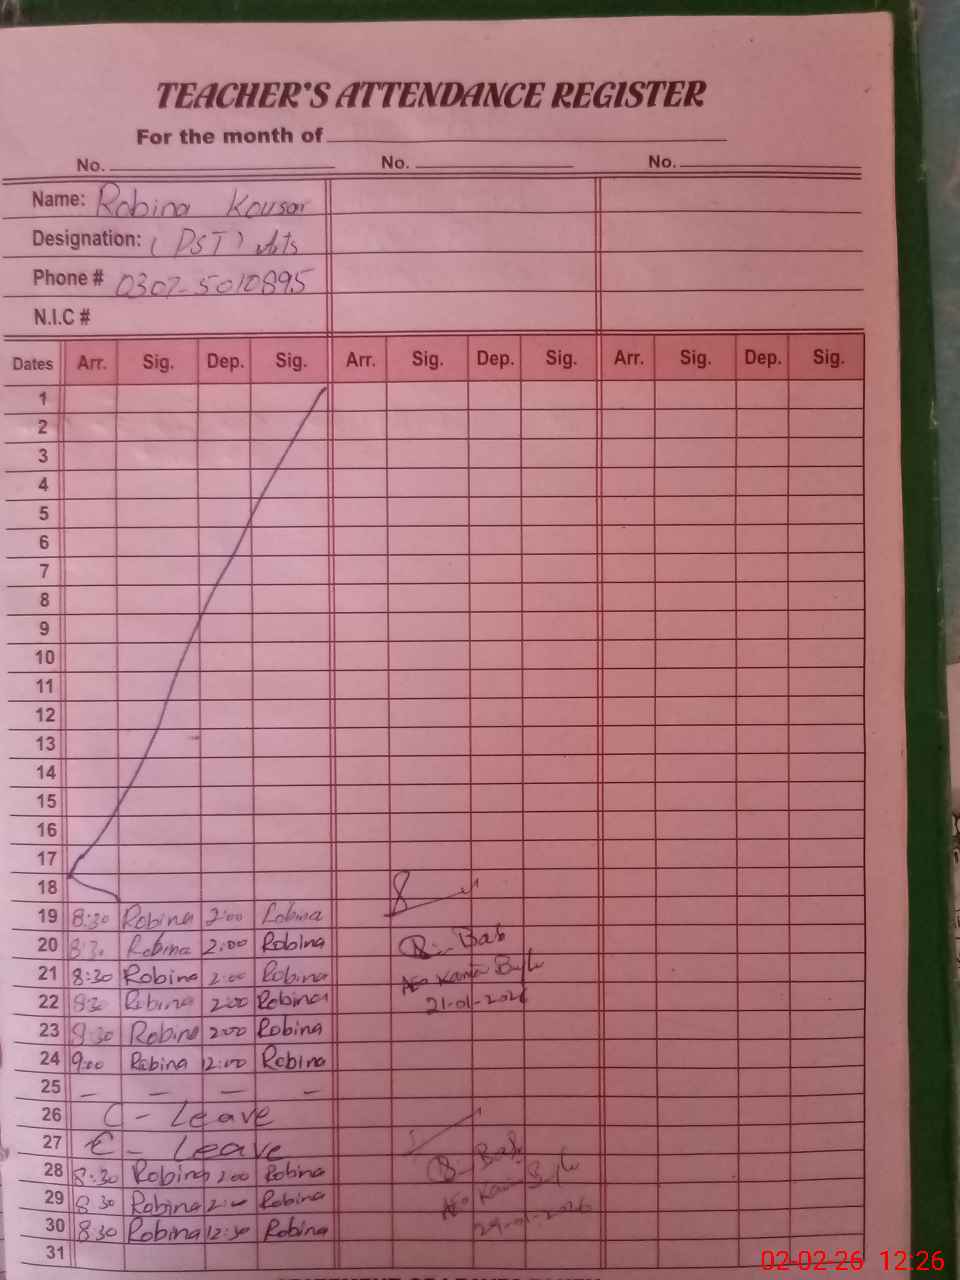 TEACHER'S ATTENDANCE REGISTER
For the month of
No. No. No.
Name: Robina Kousar
Designation: (PST) Arts
Phone # 0307-5010895
N.I.C #
Dates Arr. Sig. Dep. Sig. Arr. Sig. Dep. Sig. Arr. Sig. Dep. Sig.
1
2
3
4
5
6
7
8
9
10
11
12
13
14
15
16
17
18
19 8:30 Robina 2:00 Robina
20 8:30 Robina 2:00 Robina
21 8:30 Robina 2:00 Robina
22 8:30 Robina 2:00 Robina 21-01-2026
23 8:30 Robina 2:00 Robina
24 9:00 Robina 12:00 Robina
25 – – – –
26 C - Leave
27 C - Leave
28 8:30 Robina 2:00 Robina
29 8:30 Robina 2:00 Robina
30 8:30 Robina 12:30 Robina 29-01-2026
31
02-02-26 12:26